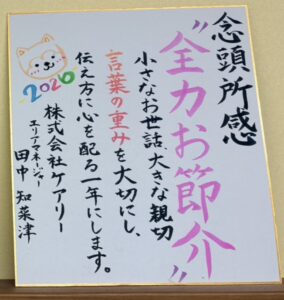 念頭所感
"全力お節介"
小さなお世話、大きな親切
言葉の重みを大切にし、
伝え方に心を配る一年にします。
株式会社ケアリー
エリアマネージャー
田中 知菜津
2026